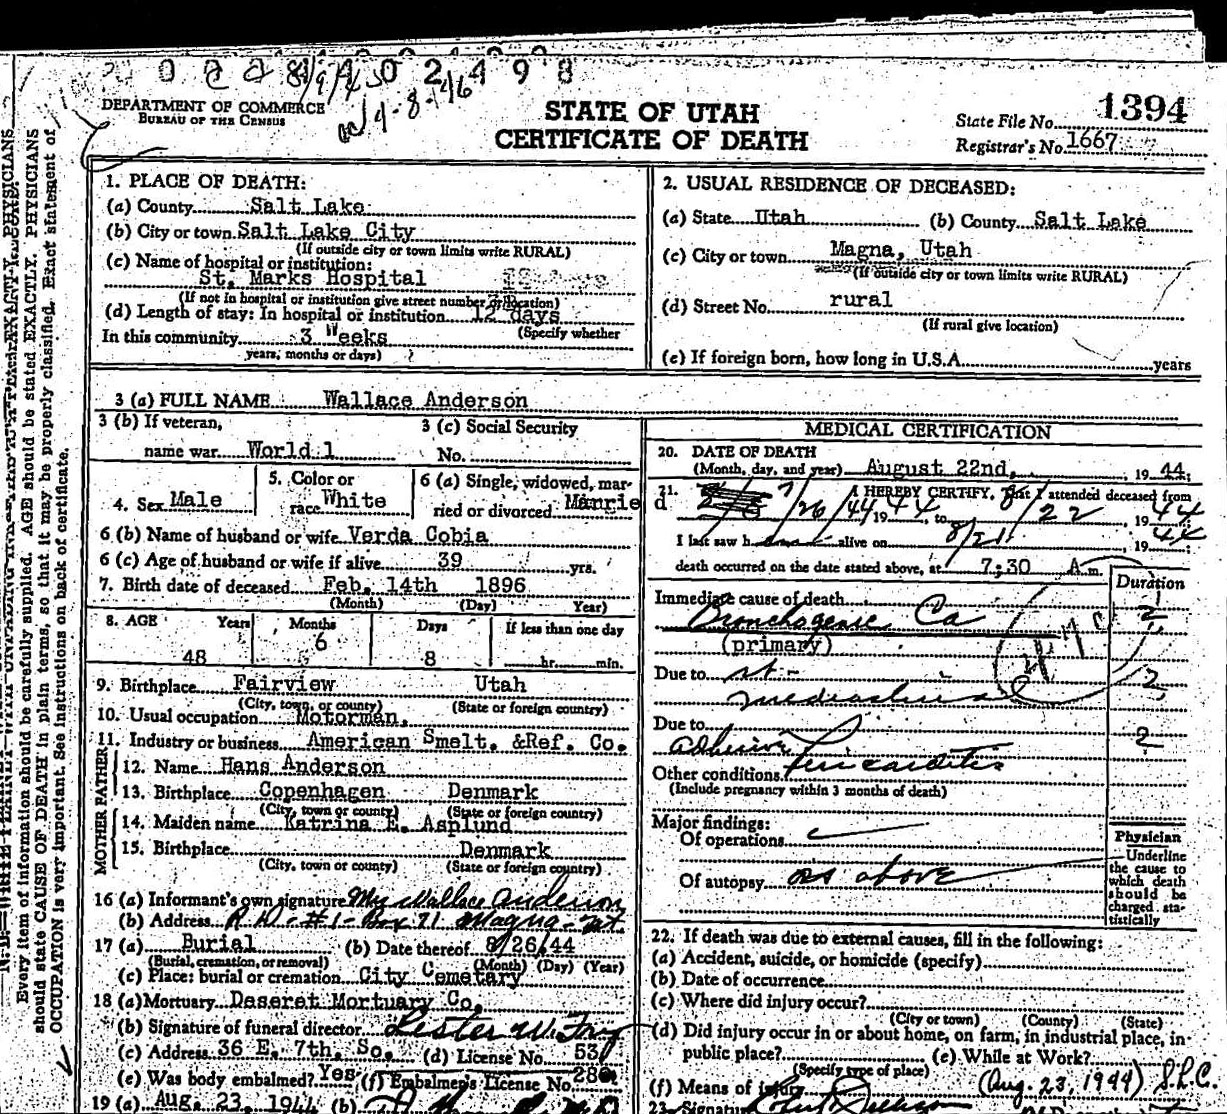 DEPARTMENT OF COMMERCE
BUREAU OF THE CENSUS
STATE OF UTAH
CERTIFICATE OF DEATH
State File No. 1394
Registrar's No. 1667
1. PLACE OF DEATH:
(a) County Salt Lake
(b) City or town Salt Lake City
(If outside city or town limits write RURAL)
(c) Name of hospital or institution:
St. Marks Hospital
(If not in hospital or institution give street number or location)
(d) Length of stay: In hospital or institution 12 days
(Specify whether
In this community 3 Weeks
years, months or days)
2. USUAL RESIDENCE OF DECEASED:
(a) State Utah (b) County Salt Lake
(c) City or town Magna, Utah
(If outside city or town limits write RURAL)
(d) Street No. rural
(If rural give location)
(e) If foreign born, how long in U.S.A. years
3 (a) FULL NAME Wallace Anderson
3 (b) If veteran, 3 (c) Social Security
name war World 1 No.
4. Sex Male 5. Color or race White 6 (a) Single, widowed, married or divorced Marrie
6 (b) Name of husband or wife Verda Cobia
6 (c) Age of husband or wife if alive 39 yrs.
7. Birth date of deceased Feb. 14th 1896
(Month) (Day) Year)
8. AGE Years Months Days If less than one day
48 6 8 hr. min.
9. Birthplace Fairview Utah
(City, town, or county) (State or foreign country)
10. Usual occupation Motorman.
11. Industry or business American Smelt. &Ref. Co.
FATHER
12. Name Hans Anderson
13. Birthplace Copenhagen Denmark
(City, town or county) (State or foreign country)
MOTHER
14. Maiden name Katrina E. Asplund
15. Birthplace Denmark
(City, town or county) (State or foreign country)
16 (a) Informant's own signature Mrs Wallace Anderson
(b) Address R D - #1 - Box 71 Magna - Ut.
17 (a) Burial (b) Date thereof 8/26/44
(Burial, cremation, or removal) (Month) (Day) (Year)
(c) Place: burial or cremation City Cemetary
18 (a) Mortuary Deseret Mortuary Co.
(b) Signature of funeral director Lester W.
(c) Address 36 E. 7th. So. (d) License No. 53
(e) Was body embalmed? Yes (f) Embalmer's License No.
19 (a) Aug. 23, 1944 (b)
MEDICAL CERTIFICATION
20. DATE OF DEATH
(Month, day, and year) August 22nd, 19 44.
21. I HEREBY CERTIFY, That I attended deceased from
7/26/44 19 44, to 8/22, 19 44
I last saw h alive on 8/21 19 44
death occurred on the date stated above, at 7;30 A m.
Duration
Immediate cause of death
Bronchogenic Ca
(primary)
Due to
mediastinal
2
Due to
adhesive Pericarditis
2
Other conditions
(Include pregnancy within 3 months of death)
Major findings:
Of operations
Of autopsy as above
Physician
Underline the cause to which death should be charged statistically
22. If death was due to external causes, fill in the following:
(a) Accident, suicide, or homicide (specify)
(b) Date of occurrence
(c) Where did injury occur?
(City or town) (County) (State)
(d) Did injury occur in or about home, on farm, in industrial place, in
public place? (e) While at Work?
(Specify type of place)
(f) Means of injury (Aug. 23, 1944) S.L.C.
23. Signature
Every item of information should be carefully supplied. AGE should be stated EXACTLY. PHYSICIANS
should state CAUSE OF DEATH in plain terms, so that it may be properly classified. Exact statement of
OCCUPATION is very important. See instructions on back of certificate.